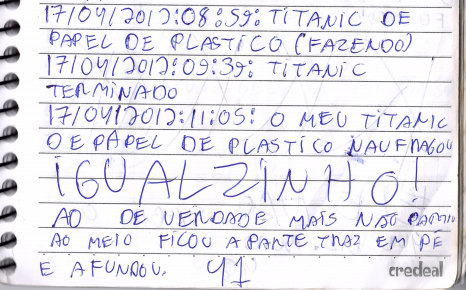 17/04/2012:08:59: TITANIC DE
PAPEL DE PLASTICO (FAZENDO)
17/04/2012:09:39: TITANIC
TERMINADO
17/04/2012:11:05: O MEU TITANIC
O E PAPEL DE PLASTICO NAUFRAGOU
IGUALZINHO!
AO DE VERDADE MAIS NAO PARTIU
AO MEIO FICOU A PARTE TRAZ EM PÉ
E AFUNDOU. 41
credeal